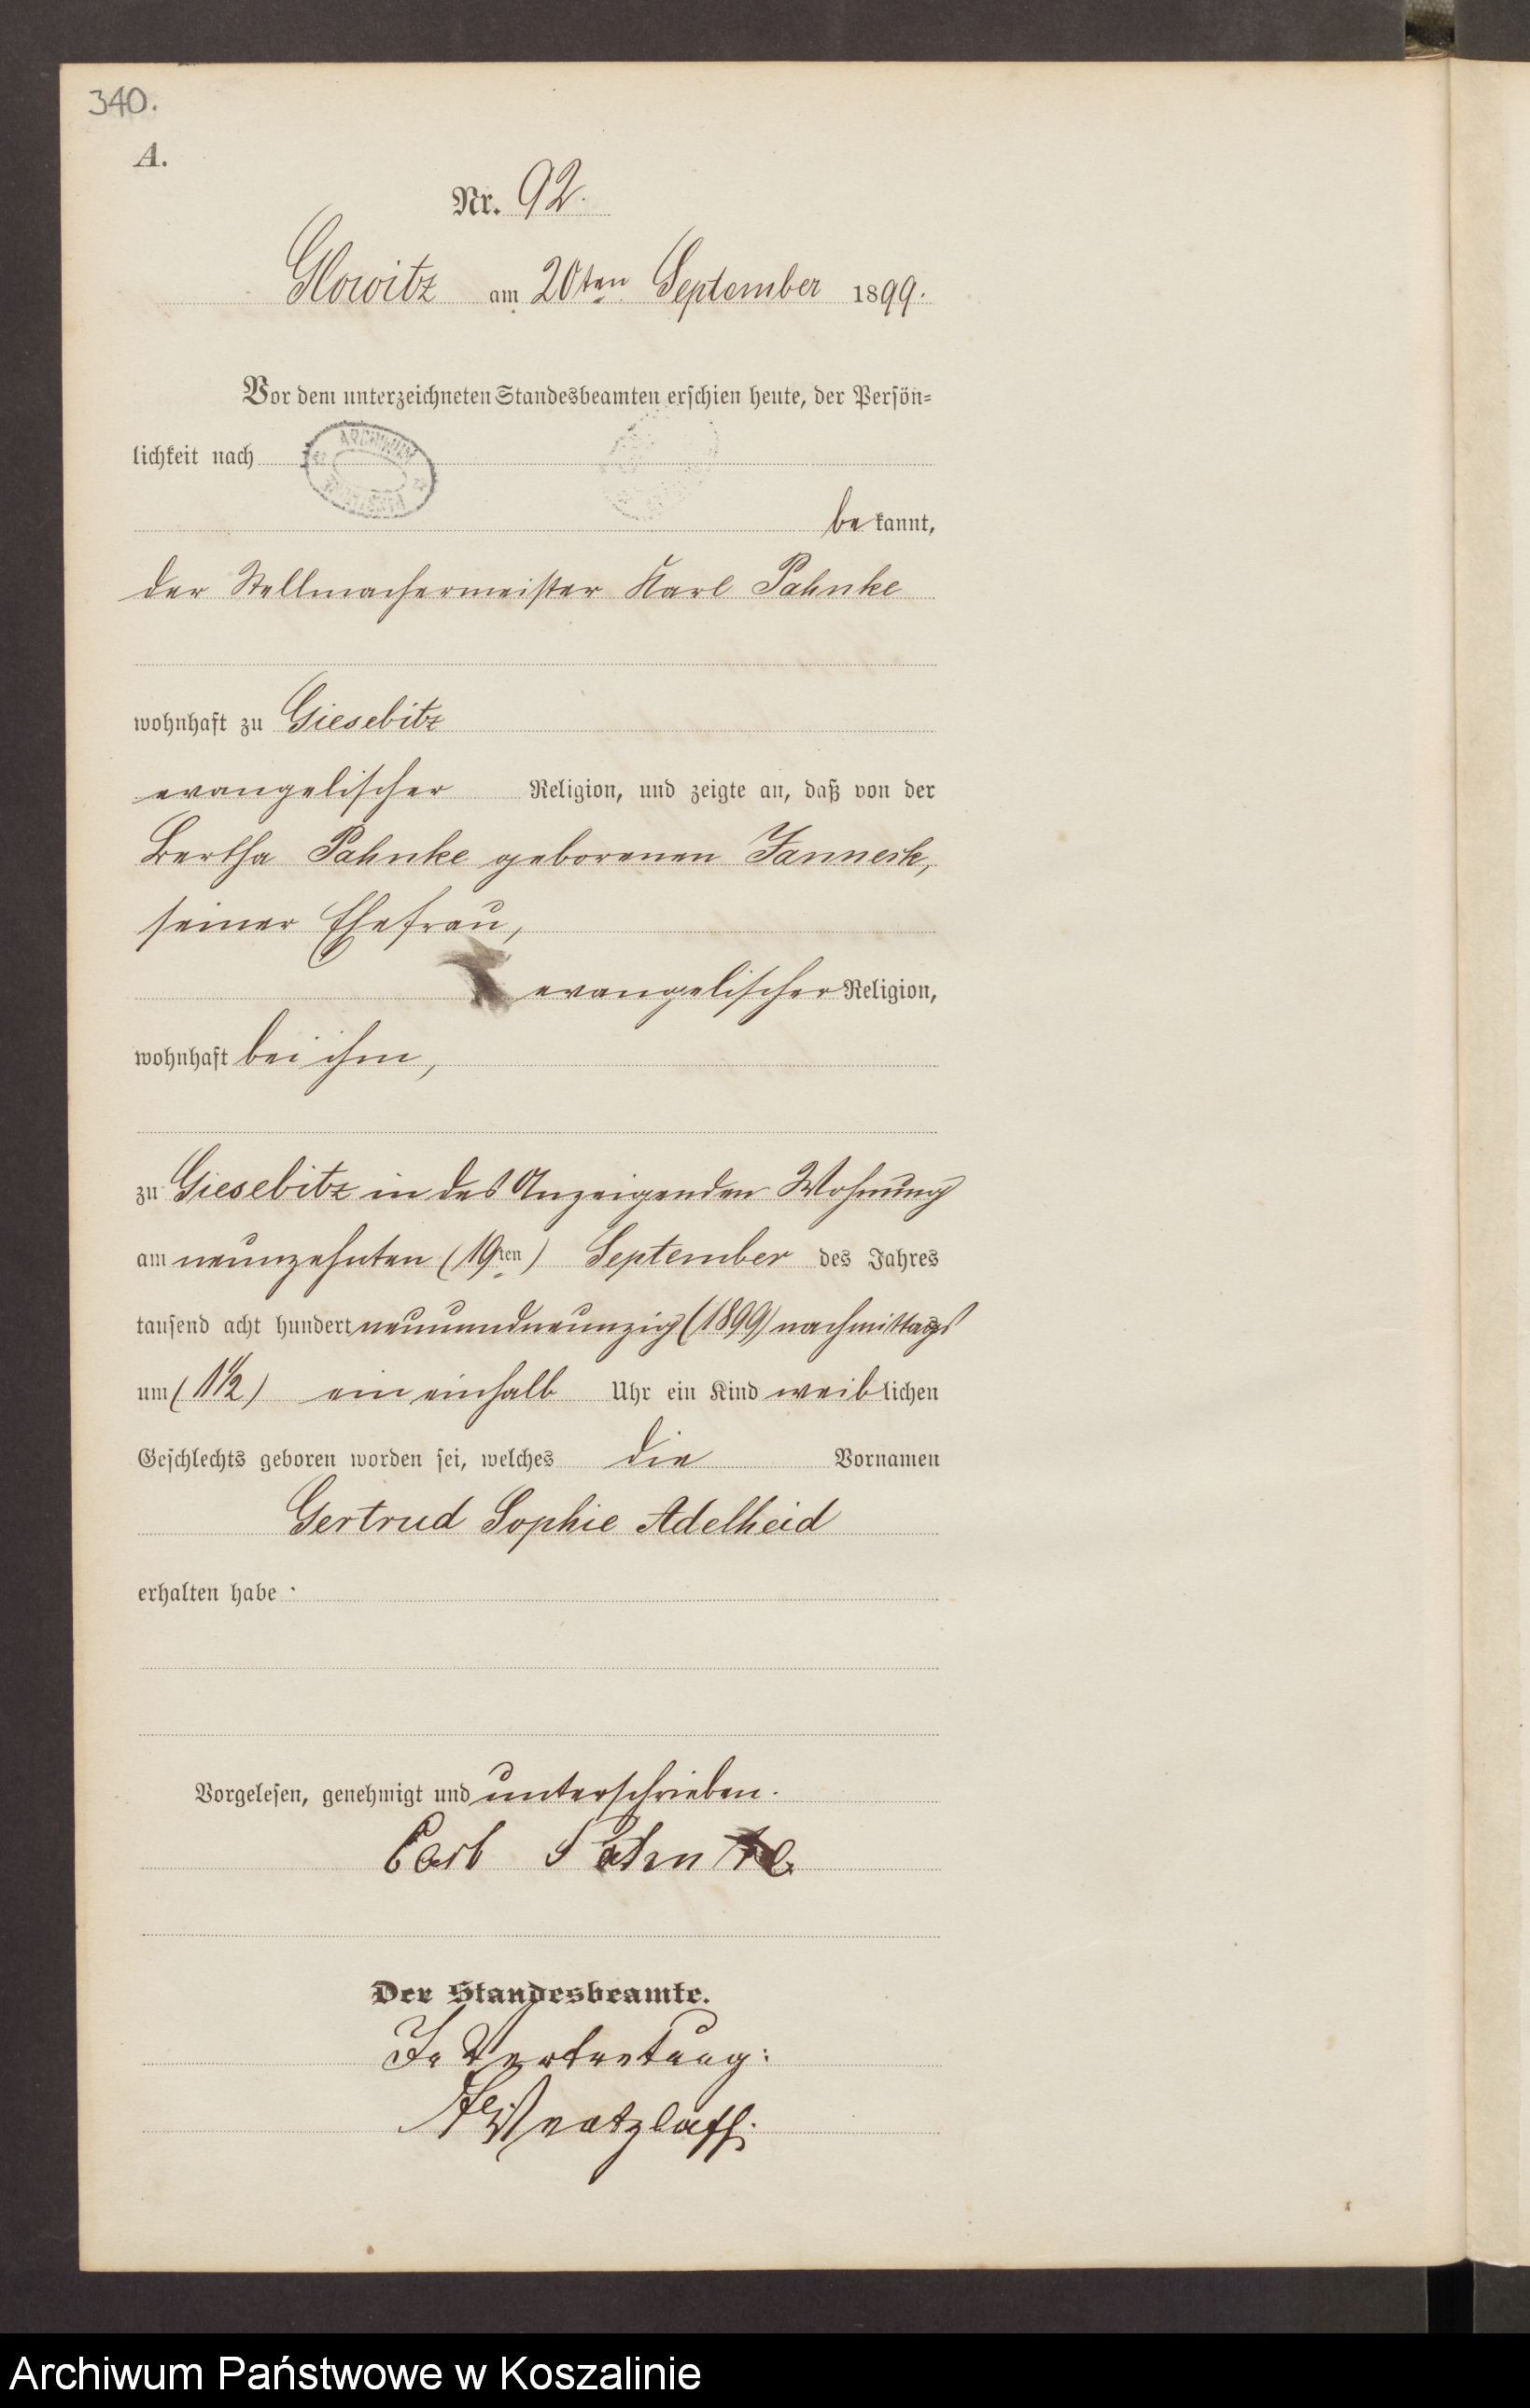 340.
A.
Nr. 92.
Glowitz am 20ten September 1899.
Vor dem unterzeichneten Standesbeamten erschien heute, der Persön=
lichkeit nach
ARCHIWUM
be kannt,
der Stellmachermeister Karl Pahnke
wohnhaft zu Giesebitz
evangelischer Religion, und zeigte an, daß von der
Bertha Pahnke geborenen Janneck,
seiner Ehefrau,
evangelischer Religion,
wohnhaft bei ihm,
zu Giesebitz in des Anzeigenden Wohnung
am neunzehnten (19ten) September des Jahres
tausend acht hundert neunundneunzig (1899) nachmittags
um (1 1/2) ein einhalb Uhr ein Kind weiblichen
Geschlechts geboren worden sei, welches die Vornamen
Gertrud Sophie Adelheid
erhalten habe
Vorgelesen, genehmigt und unterschrieben.
Carl Pahnke
Der Standesbeamte.
In Vertretung:
Archiwum Państwowe w Koszalinie